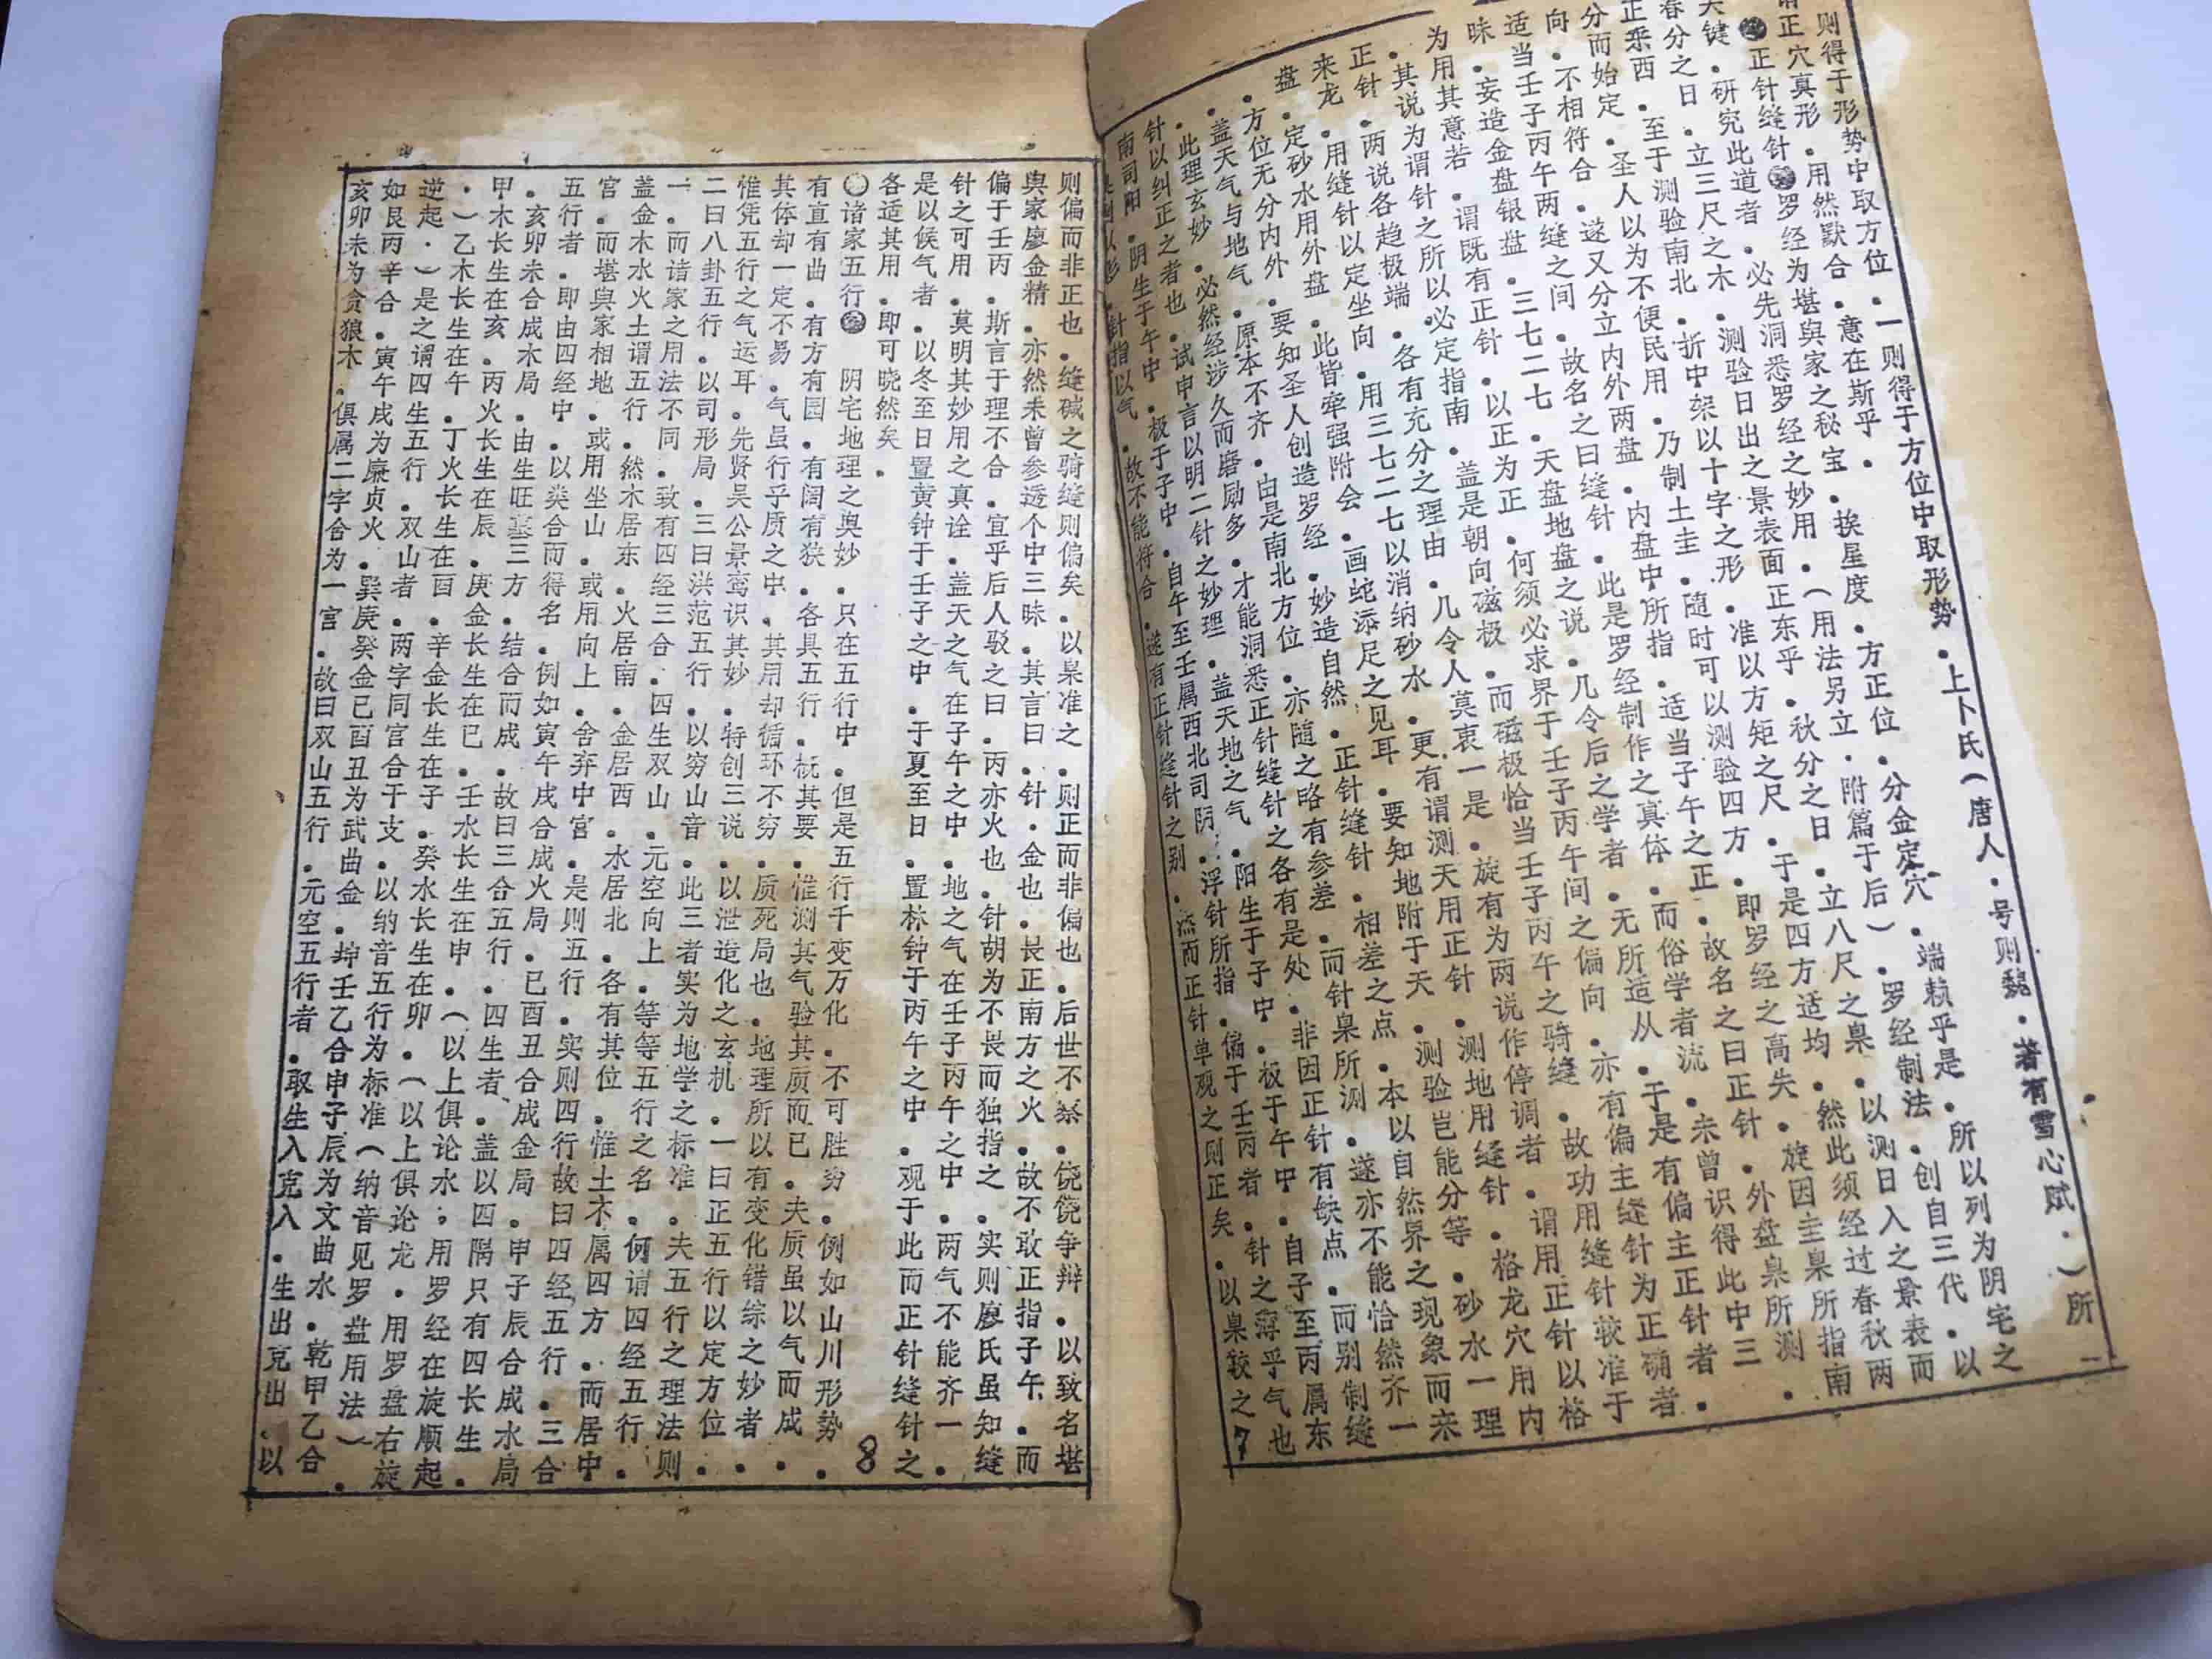 则得于形势中取方位．一则得于方位中取形势．上卜氏（唐人．号则魏．著有雪心赋．）所
谓正穴真形．用然默合．意在斯乎．
正针缝针 罗经为堪舆家之秘宝．挨星度．方正位．分金定穴．端赖乎是．所以列为阴宅之
关键．研究此道者．必先洞悉罗经之妙用．（用法另立．附篇于后）．罗经制法．创自三代．以
春分之日．立三尺之木．测验日出之景表面正东乎．秋分之日．立八尺之臬．以测日入之景表而
正乘西．至于测验南北．折中架以十字之形．准以方矩之尺．于是四方适均．然此须经过春秋两
分而始定．圣人以为不便民用．乃制土圭．随时可以测验四方．即罗经之高失．旋因圭臬所指南
向．不相符合．遂又分立内外两盘．内盘中所指．适当子午之正．故名之曰正针．外盘臬所测．
适当壬子丙午两缝之间．故名之曰缝针．此是罗经制作之真体．而俗学者流．未曾识得此中三
昧．妄造金盘银盘．三七二七．天盘地盘之说．几令后之学者．无所适从．于是有偏主正针者．
为用其意若．谓既有正针．以正为正．何须必求界于壬子丙午间之偏向．亦有偏主缝针为正确者
．其说为谓针之所以必定指南．盖是朝向磁极．而磁极恰当壬子丙午之骑缝．故功用缝针较准于
正针．两说各趋极端．各有充分之理由．几令人莫衷一是．旋有为两说作停调者．谓用正针以格
来龙．用缝针以定坐向．用三七二七以消纳砂水．更有谓测天用正针．测地用缝针．格龙穴用内
盘．定砂水用外盘．此皆牵强附会．画蛇添足之见耳．要知地附于天．测验岂能分等．砂水一理
．方位无分内外．要知圣人创造罗经．妙造自然．正针缝针．相差之点．本以自然界之现象而来
．盖天气与地气．原本不齐．由是南北方位．亦随之略有参差．而针臬所测．遂亦不能恰然齐一
．此理玄妙．必然经涉久而磨励多．才能洞悉正针缝针之各有是处．非因正针有缺点．而别制缝
针以纠正之者也．试申言以明二针之妙理．盖天地之气．阳生于子中．极于午中．自子至丙属东
南司阳．阴生于午中．极于子中．自午至壬属西北司阴．浮针所指．偏于壬丙者．针之薄乎气也
测以影．针指以气．故不能符合．遂有正针缝针之别．然而正针单观之则正矣．以臬较之
7
则偏而非正也．缝碱之骑缝则偏矣．以臬准之．则正而非偏也．后世不察．饶饶争辩．以致名堪
舆家廖金精．亦然未曾参透个中三昧．其言曰．针．金也．畏正南方之火．故不敢正指子午．而
偏于壬丙．斯言于理不合．宜乎后人驳之曰．丙亦火也．针胡为不畏而独指之．实则廖氏虽知缝
针之可用．莫明其妙用之真诠．盖天之气在子午之中．地之气在壬子丙午之中．两气不能齐一．
是以候气者．以冬至日置黄钟于壬子之中．于夏至日．置林钟于丙午之中．观于此而正针缝针之
各适其用．即可晓然矣．
8
诸家五行 阴宅地理之奥妙．只在五行中．但是五行千变万化．不可胜穷．例如山川形势．
有直有曲．有方有园．有阔有狭．各具五行．概其要．惟测其气验其质而已．夫质虽以气而成．
其体却一定不易．气虽行乎质之中．其用却循环不穷．质死局也．地理所以有变化错综之妙者．
惟凭五行之气运耳．先贤吴公景鸾识其妙．特创三说．以泄造化之玄机．一曰正五行以定方位．
二曰八卦五行．以司形局．三曰洪范五行．以穷山音．此三者实为地学之标准．夫五行之理法则
一．而诸家之用法不同．致有四经三合．四生双山．元空向上．等等五行之名．何谓四经五行．
盖金木水火土谓五行．然木居东．火居南．金居西．水居北．各有其位．惟土不属四方．而居中
宫．而堪舆家相地．或用坐山．或用向上．舍弃中宫．是则五行．实则四行故曰四经五行．三合
五行者．即由四经中．以类合而得名．例如寅午戌合成火局．巳酉丑合成金局．申子辰合成水局
．亥卯未合成木局．由生旺墓三方．结合而成．故曰三合五行．四生者．盖以四隅只有四长生．
甲木长生在亥．丙火长生在辰．庚金长生在巳．壬水长生在申．（以上俱论水；用罗经在旋顺起
．）乙木长生在午．丁火长生在酉．辛金长生在子．癸水长生在卯．（以上俱论龙．用罗盘右旋
逆起．）是之谓四生五行．双山者．两字同宫合干支．以纳音五行为标准（纳音见罗盘用法）．
如艮丙辛合．寅午戌为廉贞火．巽庚癸金己酉丑为武曲金．坤壬乙合申子辰为文曲水．乾甲乙合
亥卯未为贪狼木．俱属二字合为一宫．故曰双山五行．元空五行者．取生入克入．生出克出．以